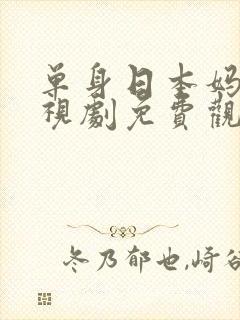 单身日本妈
視劇免費觀
冬乃郁也,崎谷